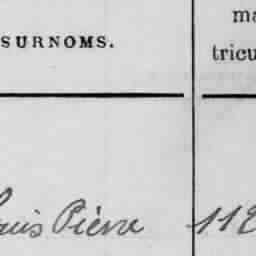 SURNOMS.
ma
tricu
ouis Pierre 112